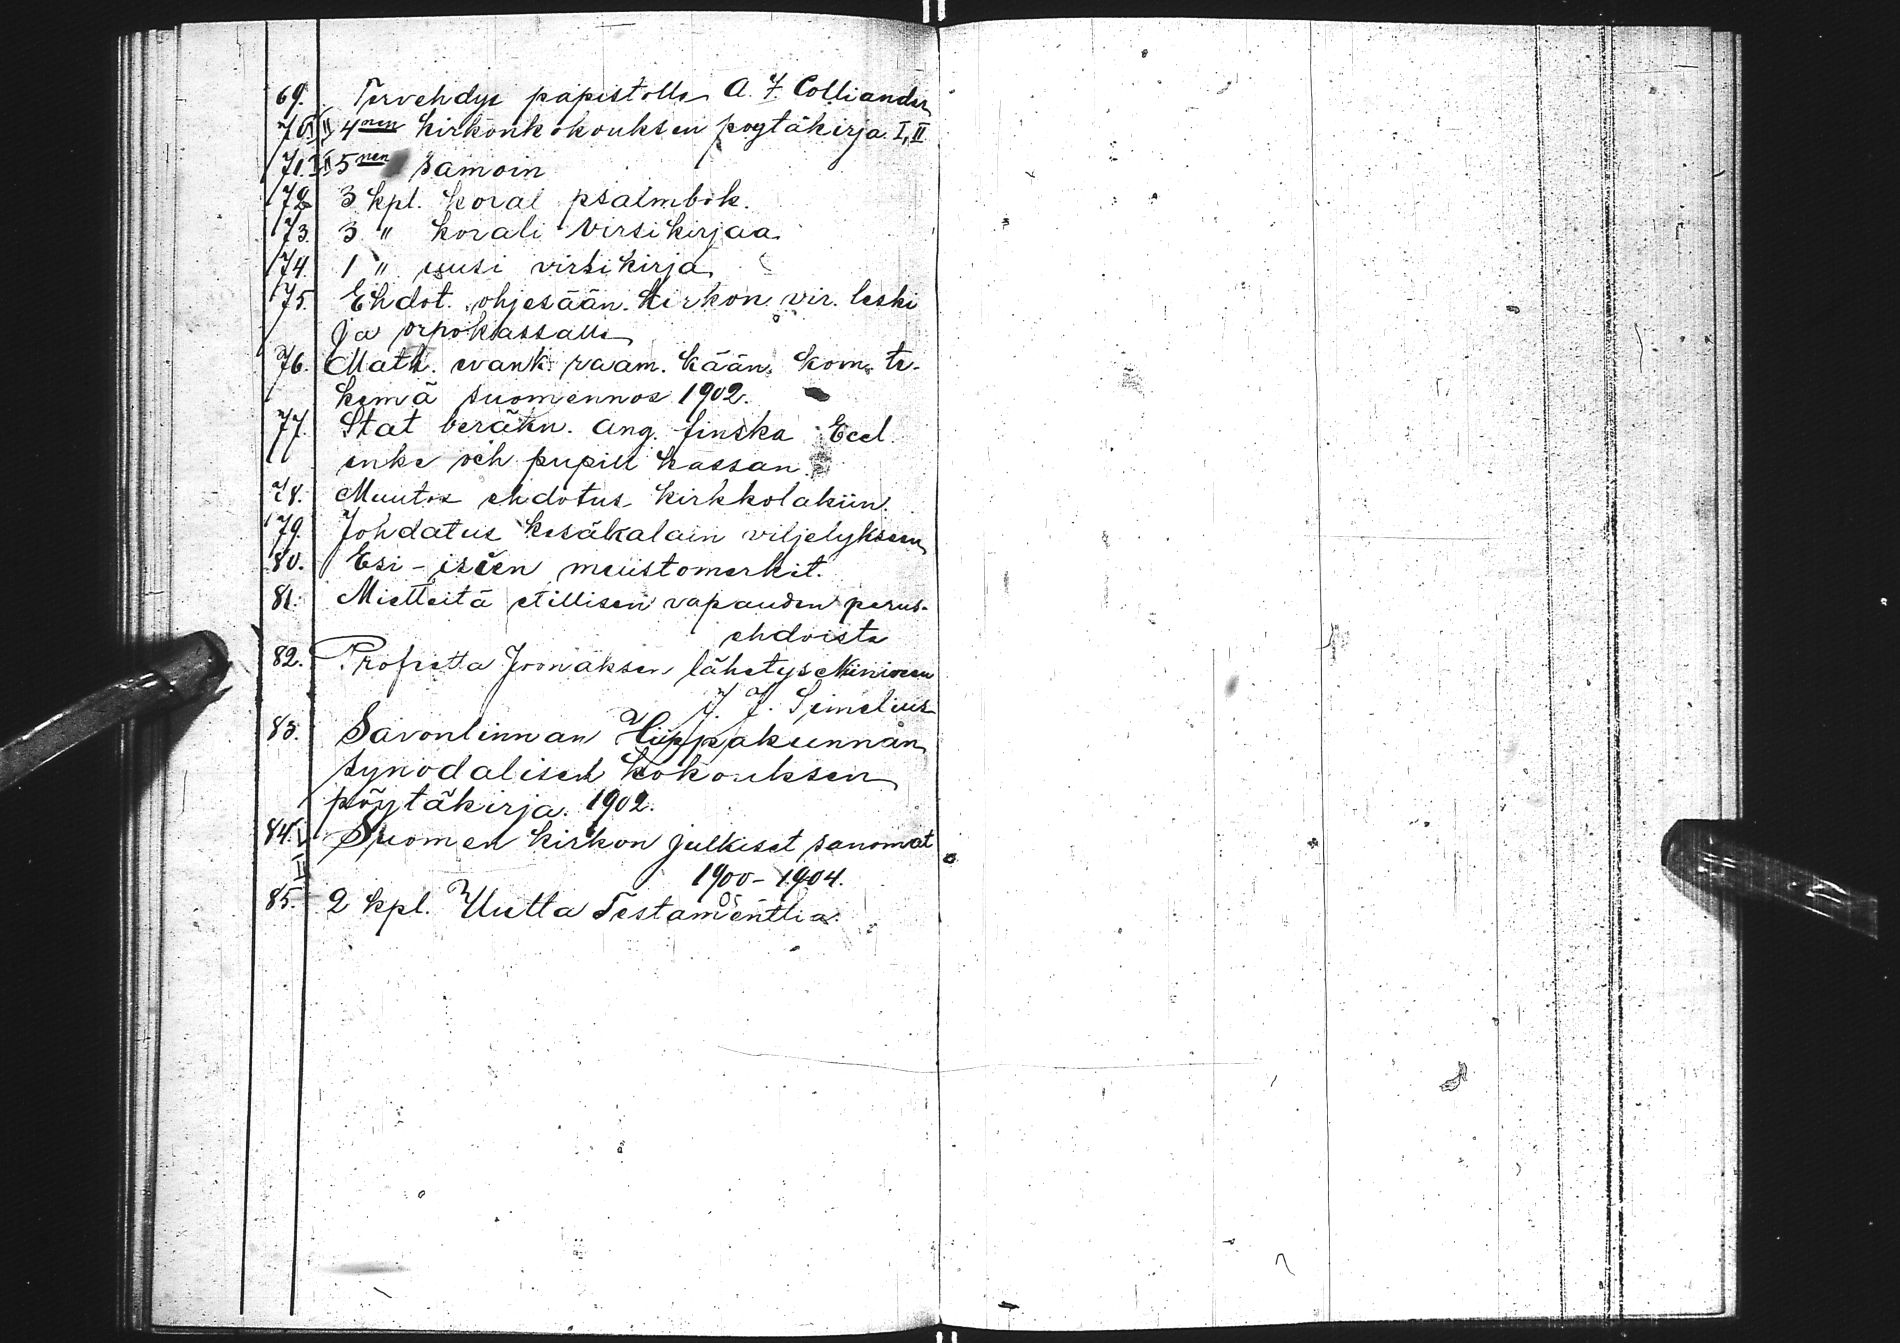 69. Tervehdys papistolle A. F. Colliander
70. I, II 4nen Kirkonkokouksen pöytäkirja I, II
71. I, II 5nen samoin
72 3 kpl. Koral psalmbok.
73. 3 " Korali Virsikirjaa
74. 1 " uusi virsikirja
75. Ehdot. ohjesään. Kirkon vir. leski
ja orpokassalle
76. Math. evank. raam. kään. kom. te-
kemä suomennos 1902.
77. Stat beräkn. ang. finska Eccl.
enke och pupill kassan.
78. Muutos ehdotus Kirkkolakiin.
79. Johdatus kesäkalain viljelykseen
80. Esi-isien muistomerkit.
81. Mietteitä etillisen vapauden perus-
ehdoista
82. Profeetta Joonaksen lähetys Niniveen
J. J. Simelius
83. Savonlinnan Hiippakunnan
synodalisen Kokouksen
pöytäkirja. 1902.
84. I Suomen kirkon julkiset sanomat
II 1900-1904.
85. 2 kpl. Uutta Testamenttia.